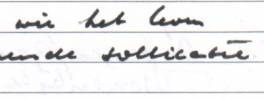 wie het leven
ende sollicitatie